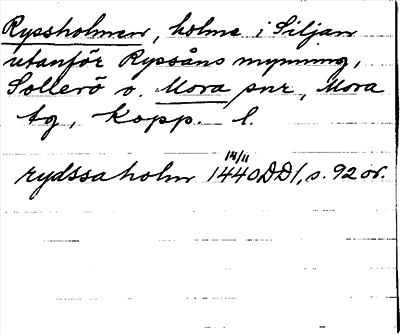 Ryssholmen, holme i Siljan
utanför Ryssåns mynning,
Sollerö o. Mora snr, Mora
tg, Kopp. l.
14/11
rydssaholm 1440 DD1, s. 92 or.